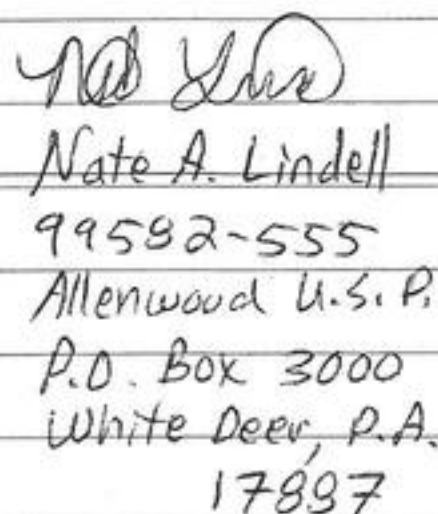 Nate A. Lindell
99582-555
Allenwood U.S.P.
P.O. Box 3000
White Deer, P.A.
17887